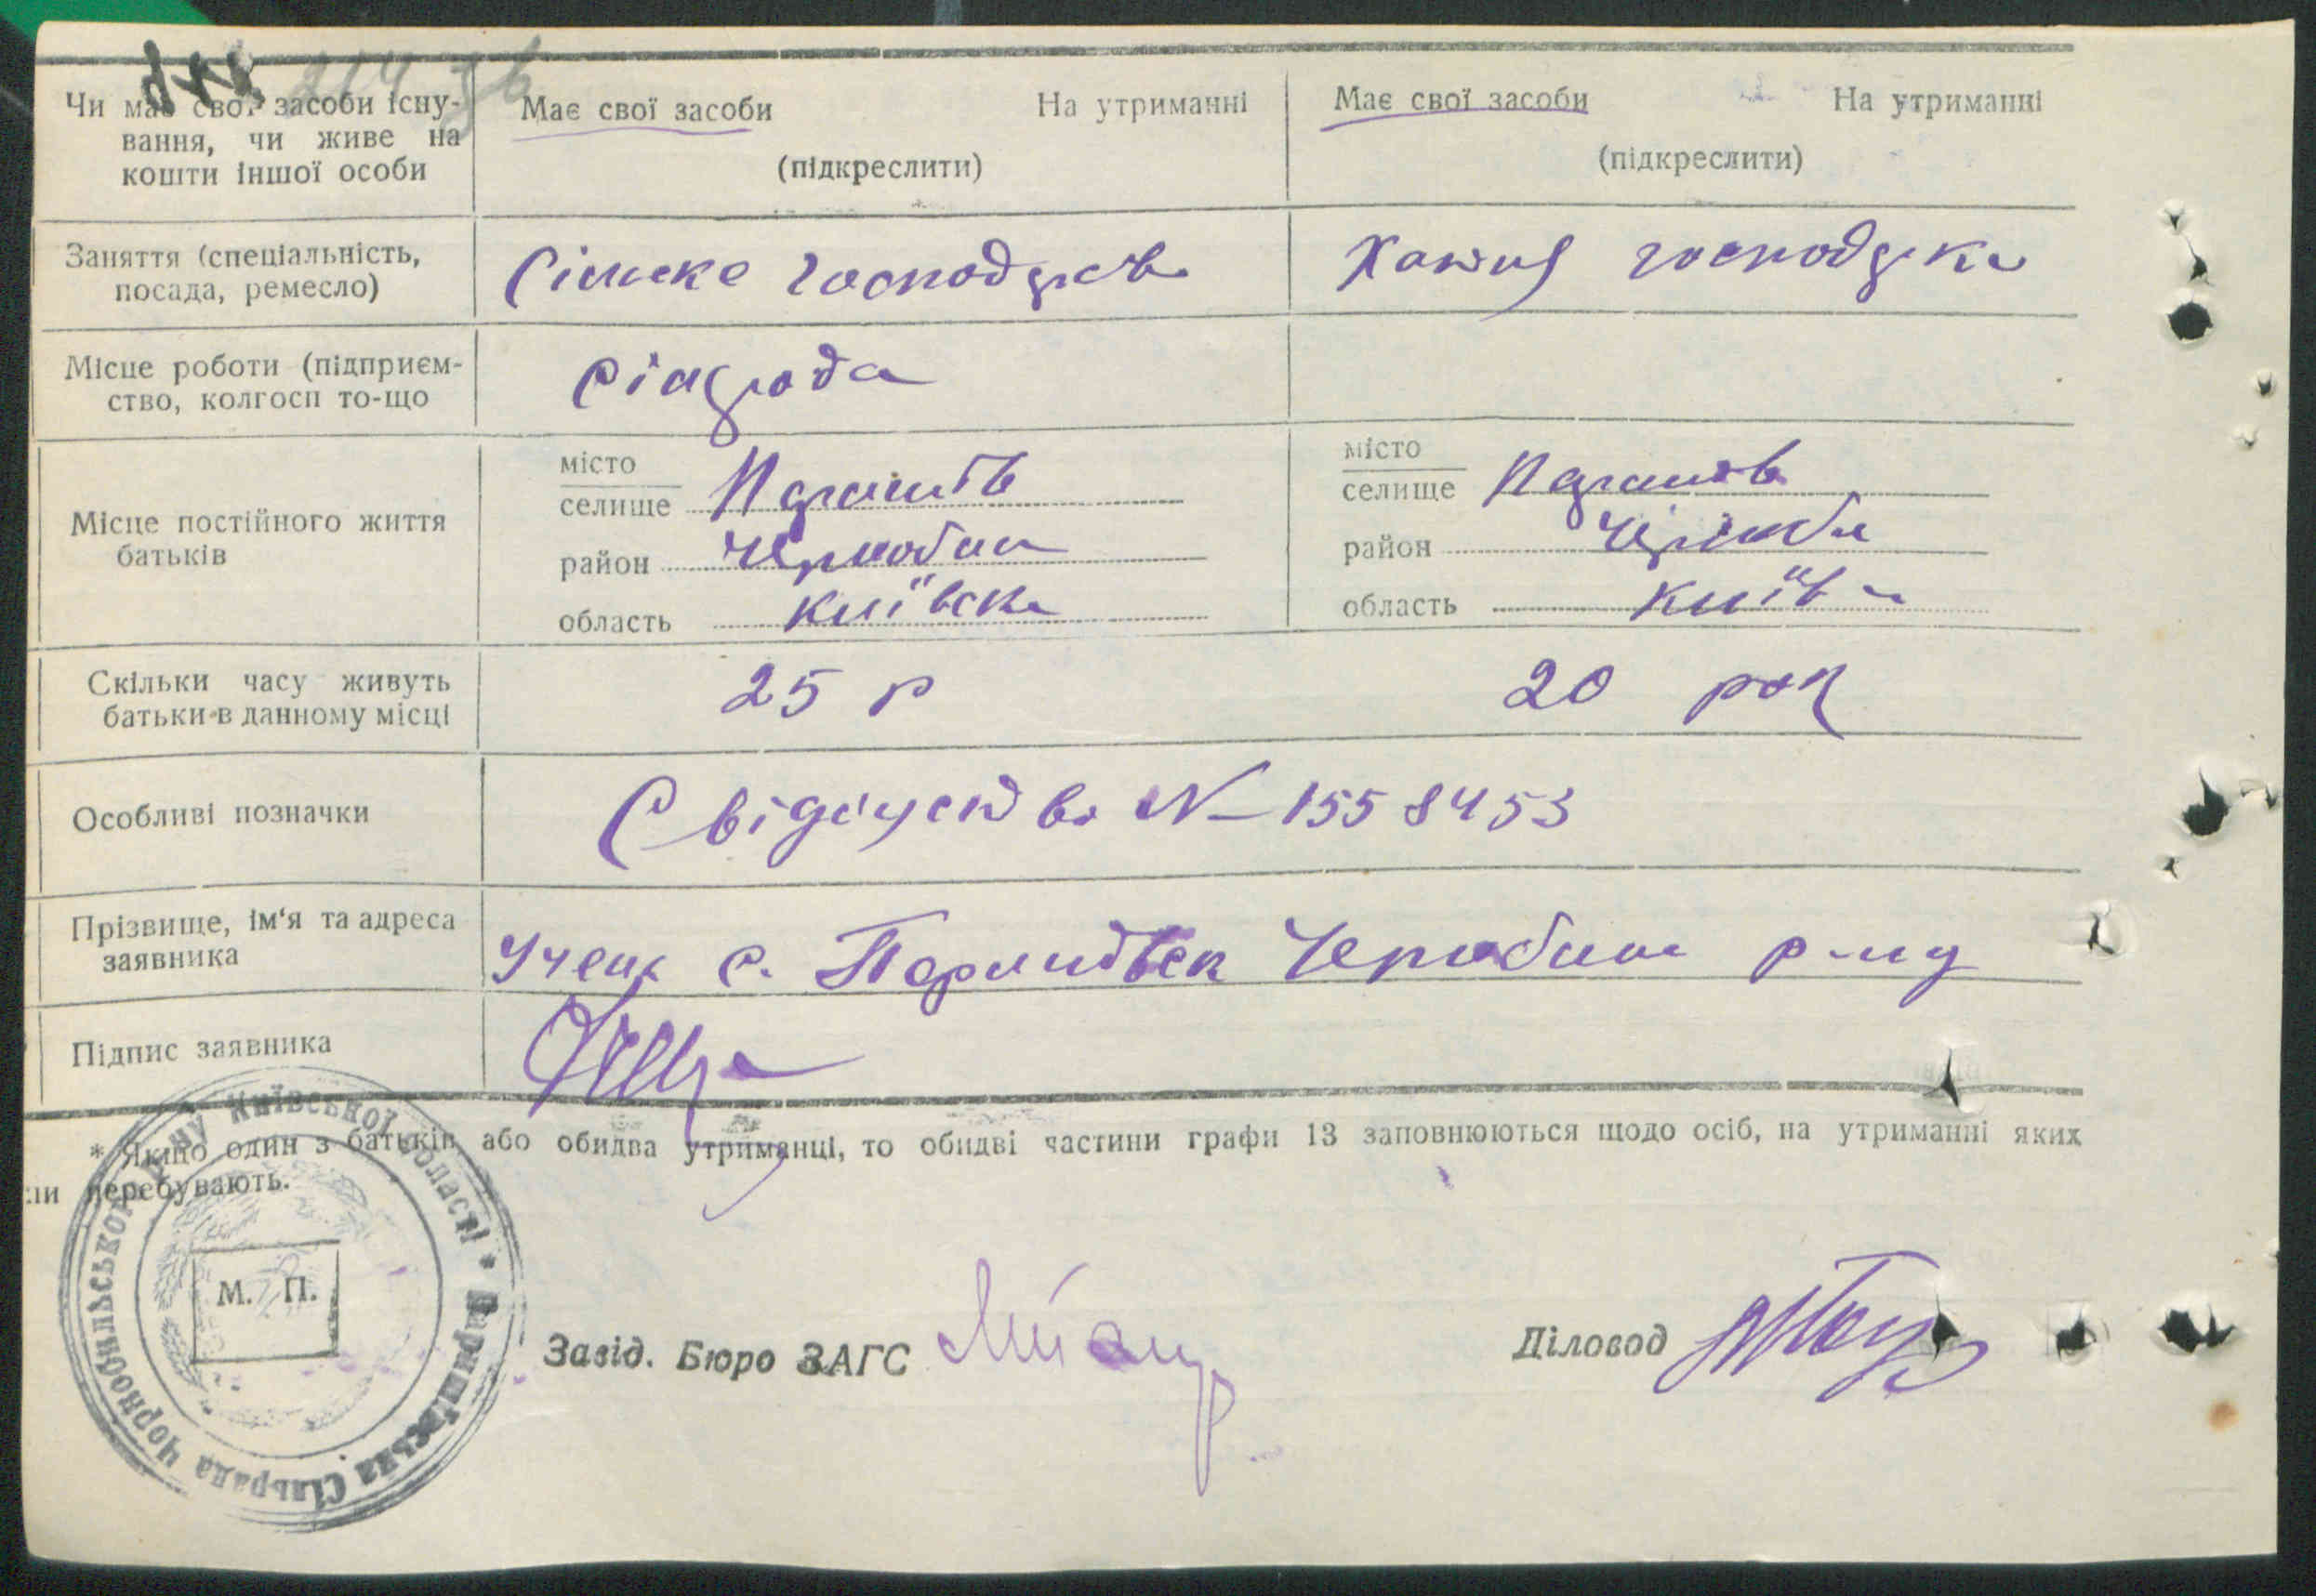 Чи має свої засоби існу-
вання, чи живе на
кошти іншої особи
Має свої засоби На утриманні
(підкреслити)
Має свої засоби На утриманні
(підкреслити)
Заняття (спеціальність,
посада, ремесло)
Сільске господарств
Хатня господарка
Місце роботи (підприєм-
ство, колгосп то-що
Сільрада
Місце постійного життя
батьків
місто
селище Паришів
район Чорнобил
область Київска
місто
селище Паришів
район Чорнобил
область Київ
Скільки часу живуть
батьки в данному місці
25 р
20 рок
Особливі позначки
Свідоцтво № 1558453
Прізвище, ім'я та адреса
заявника
с. Паришівск Чорнобил р-ну
Підпис заявника
* Якщо один з батьків або обидва утриманці, то обидві частини графи 13 заповнюються щодо осіб, на утриманні яких
ли перебувають.
М. П.
Паришівська Сільрада Чорнобильського р-ну Київської області *
Завід. Бюро ЗАГС
Діловод